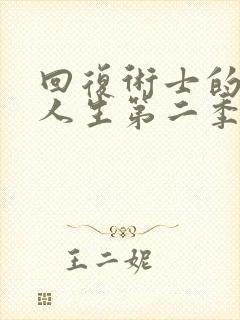 回復術士的
人生第二季
王二妮